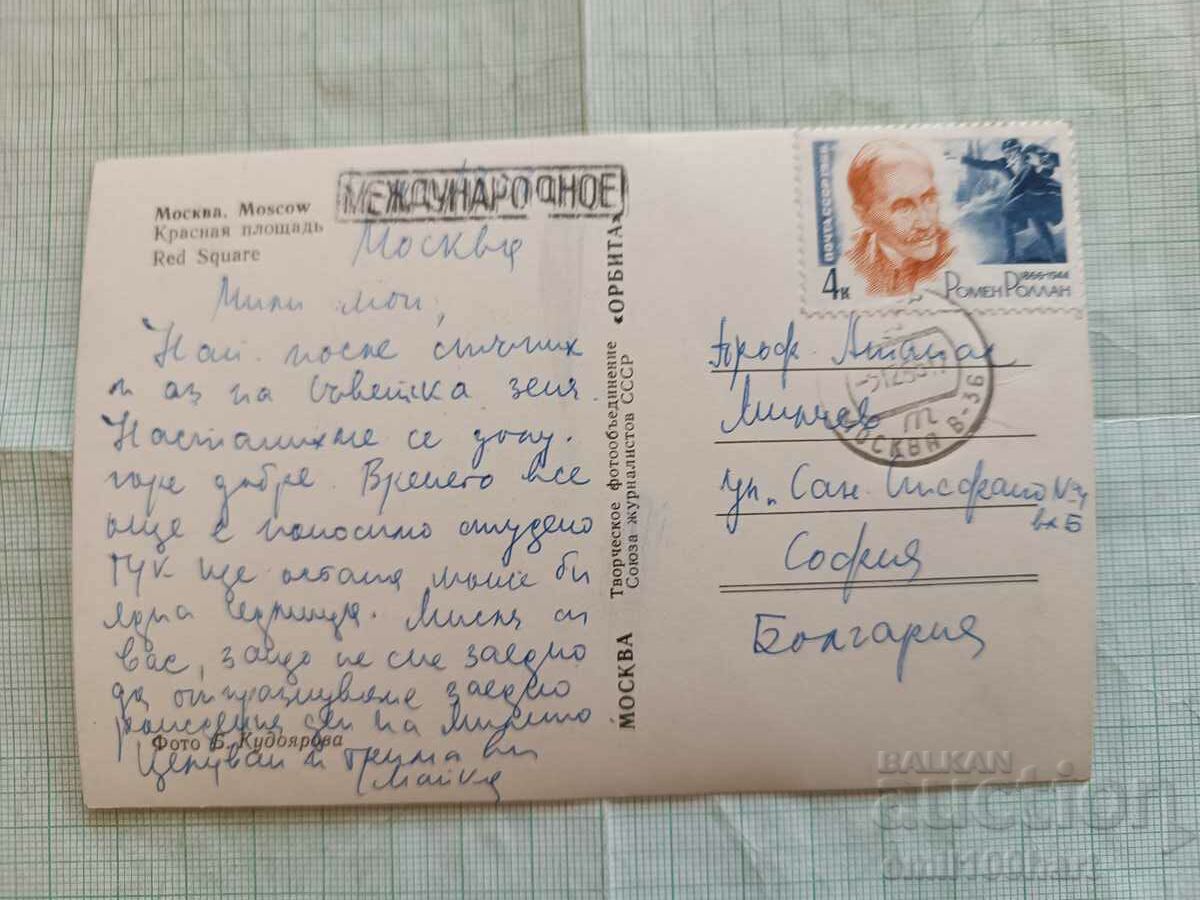 Москва. Moscow
Красная площадь
Red Square
МЕЖДУНАРОДНОЕ
Москва
Мили мои,
Най после стигнах
и аз на Съветска земя.
Настанихме се
горе добре. Времето все
още е поносимо студено
тук ще останa може би
една седмица. Мисля си
вас, защо не сме заедно
да отпразнуваме заедно
рождения ден на
Целувам и
Майка
Фото Б. Кудоярова
МОСКВА Творческое фотообъединение «ОРБИТА»
Союза журналистов СССР
ПОЧТА СССР 1966
4к
1866-1944
РОМЕН РОЛЛАН
МОСКВА В-36
Проф. Атанас
Минчев
ул. Сан. Стефано №
вх Б
София
Болгария
BALKAN
auction
emil100han